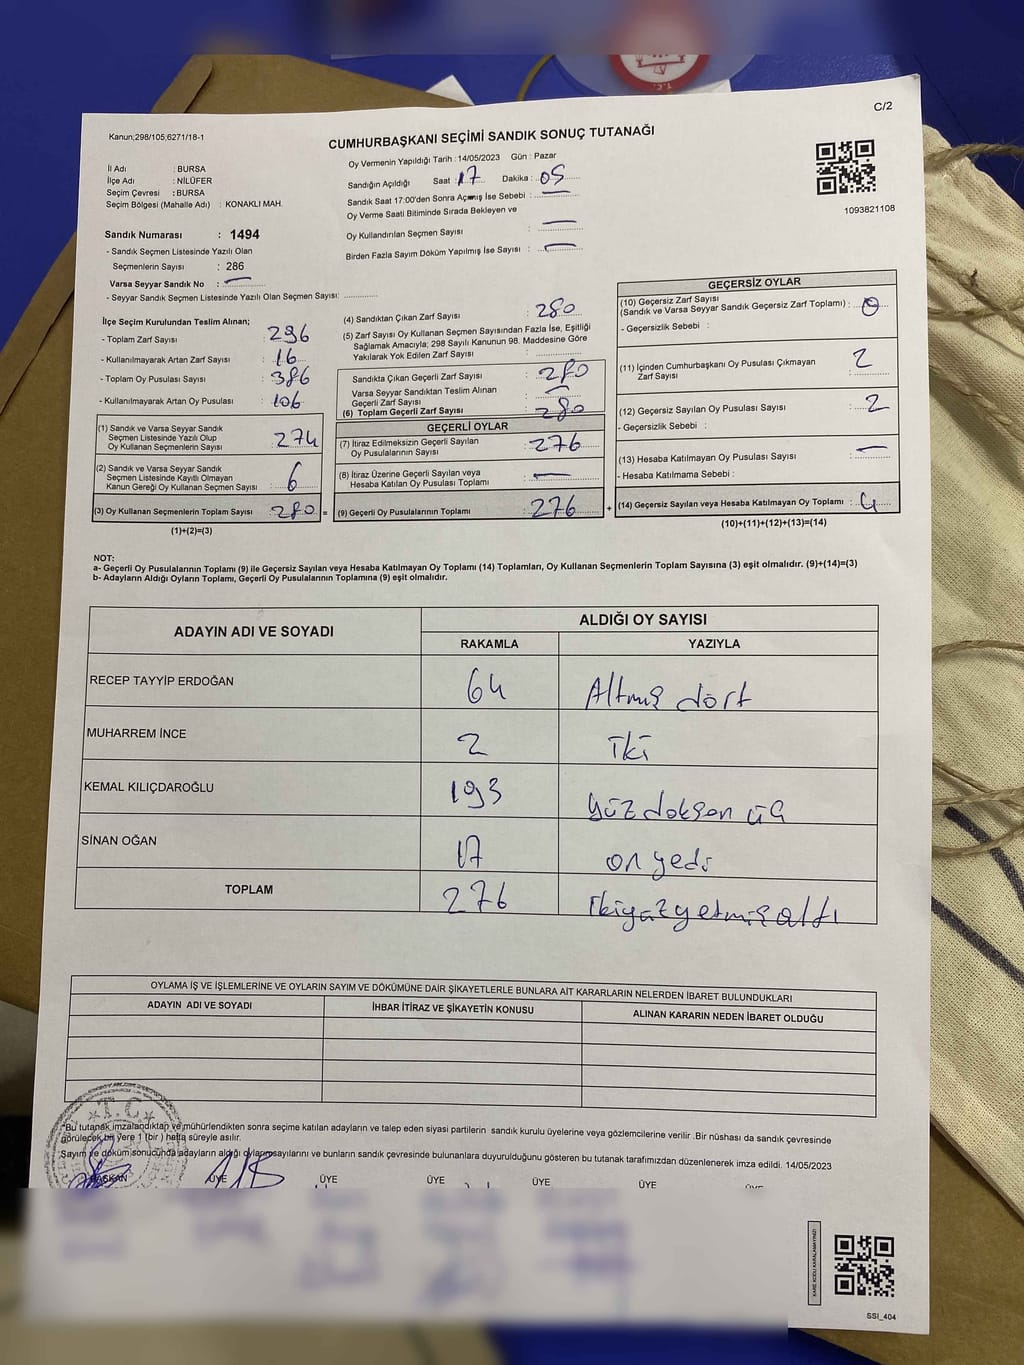 C/2
Kanun;298/105;6271/18-1
CUMHURBAŞKANI SEÇİMİ SANDIK SONUÇ TUTANAĞI
İl Adı : BURSA
İlçe Adı : NİLÜFER
Seçim Çevresi : BURSA
Seçim Bölgesi (Mahalle Adı) : KONAKLI MAH.
Oy Vermenin Yapıldığı Tarih : 14/05/2023 Gün : Pazar
Sandığın Açıldığı Saat : 17 Dakika : 05
Sandık Saat 17:00'den Sonra Açılmış İse Sebebi : —
Oy Verme Saati Bitiminde Sırada Bekleyen ve
Oy Kullandırılan Seçmen Sayısı : —
Birden Fazla Sayım Döküm Yapılmış İse Sayısı : —
1093821108
Sandık Numarası : 1494
- Sandık Seçmen Listesinde Yazılı Olan
Seçmenlerin Sayısı : 286
Varsa Seyyar Sandık No : —
- Seyyar Sandık Seçmen Listesinde Yazılı Olan Seçmen Sayısı: ............
İlçe Seçim Kurulundan Teslim Alınan;
- Toplam Zarf Sayısı : 296
- Kullanılmayarak Artan Zarf Sayısı : 16
- Toplam Oy Pusulası Sayısı : 386
- Kullanılmayarak Artan Oy Pusulası : 106
(1) Sandık ve Varsa Seyyar Sandık
Seçmen Listesinde Yazılı Olup
Oy Kullanan Seçmenlerin Sayısı : 274
(2) Sandık ve Varsa Seyyar Sandık
Seçmen Listesinde Kayıtlı Olmayan
Kanun Gereği Oy Kullanan Seçmen Sayısı : 6
(3) Oy Kullanan Seçmenlerin Toplam Sayısı : 280 =
(1)+(2)=(3)
(4) Sandıktan Çıkan Zarf Sayısı : 280
(5) Zarf Sayısı Oy Kullanan Seçmen Sayısından Fazla İse, Eşitliği
Sağlamak Amacıyla; 298 Sayılı Kanunun 98. Maddesine Göre
Yakılarak Yok Edilen Zarf Sayısı :
Sandıkta Çıkan Geçerli Zarf Sayısı : 280
Varsa Seyyar Sandıktan Teslim Alınan
Geçerli Zarf Sayısı : —
(6) Toplam Geçerli Zarf Sayısı : 280
GEÇERLİ OYLAR
(7) İtiraz Edilmeksizin Geçerli Sayılan
Oy Pusulalarının Sayısı : 276
(8) İtiraz Üzerine Geçerli Sayılan veya
Hesaba Katılan Oy Pusulası Toplamı : —
(9) Geçerli Oy Pusulalarının Toplamı : 276 +
GEÇERSİZ OYLAR
(10) Geçersiz Zarf Sayısı
(Sandık ve Varsa Seyyar Sandık Geçersiz Zarf Toplamı) : 0
- Geçersizlik Sebebi :
(11) İçinden Cumhurbaşkanı Oy Pusulası Çıkmayan
Zarf Sayısı : 2
(12) Geçersiz Sayılan Oy Pusulası Sayısı : 2
- Geçersizlik Sebebi :
(13) Hesaba Katılmayan Oy Pusulası Sayısı : —
- Hesaba Katılmama Sebebi :
(14) Geçersiz Sayılan veya Hesaba Katılmayan Oy Toplamı : 4
(10)+(11)+(12)+(13)=(14)
NOT:
a- Geçerli Oy Pusulalarının Toplamı (9) ile Geçersiz Sayılan veya Hesaba Katılmayan Oy Toplamı (14) Toplamları, Oy Kullanan Seçmenlerin Toplam Sayısına (3) eşit olmalıdır. (9)+(14)=(3)
b- Adayların Aldığı Oyların Toplamı, Geçerli Oy Pusulalarının Toplamına (9) eşit olmalıdır.
ADAYIN ADI VE SOYADI
ALDIĞI OY SAYISI
RAKAMLA YAZIYLA
RECEP TAYYİP ERDOĞAN 64 Altmış dört
MUHARREM İNCE 2 iki
KEMAL KILIÇDAROĞLU 193 yüz doksan üç
SİNAN OĞAN 17 on yedi
TOPLAM 276 ikiyüzyetmişaltı
OYLAMA İŞ VE İŞLEMLERİNE VE OYLARIN SAYIM VE DÖKÜMÜNE DAİR ŞİKAYETLERLE BUNLARA AİT KARARLARIN NELERDEN İBARET BULUNDUKLARI
ADAYIN ADI VE SOYADI İHBAR İTİRAZ VE ŞİKAYETİN KONUSU ALINAN KARARIN NEDEN İBARET OLDUĞU
T.C.
*Bu tutanak imzalandıktan ve mühürlendikten sonra seçime katılan adayların ve talep eden siyasi partilerin sandık kurulu üyelerine veya gözlemcilerine verilir .Bir nüshası da sandık çevresinde
görülecek bir yere 1 (bir ) hafta süreyle asılır.
Sayım ve döküm sonucunda adayların aldığı oylar sayılarını ve bunların sandık çevresinde bulunanlara duyurulduğunu gösteren bu tutanak tarafımızdan düzenlenerek imza edildi. 14/05/2023
BAŞKAN ÜYE ÜYE ÜYE ÜYE ÜYE
KARE KODU KARALAMAYINIZ!
SSI_404